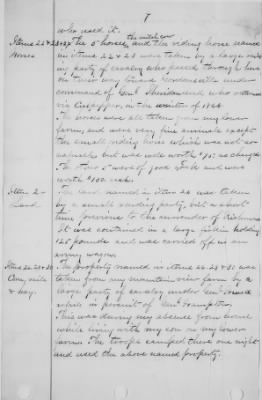 7
who used it.
Items 22 & 23 & 27 The 5 horses, the milch cow and the riding horse named
Horses in items 22 & 23 were taken by a large
party of cavalry who passed through here
on their way toward Gordonsville under
command of Genl Sheridan and who returned
via Culpepper, in the winter of 1864.
The horses were all taken from my lower
farm, and were very fine animals except
the small riding horse which was not so
valuable but was well worth $75 as charged
The others were good stock and were
worth $100 each.
Item 2- The lard named in Item 24 was taken
Lard. by a small raiding party, but a short
time previous to the surrender of Richmond
It was contained in a large firkin holding
125 pounds and was carried off in an
army wagon.
The property named in Items 28 & 30 was
Corn, mill taken from my mountain view farm by a
& hay. large party of cavalry under Genl
while in pursuit of Genl Hampton.
This was during my absence from home
while living with my son on my lower
farm. The troops camped there one night
and used the above named property.